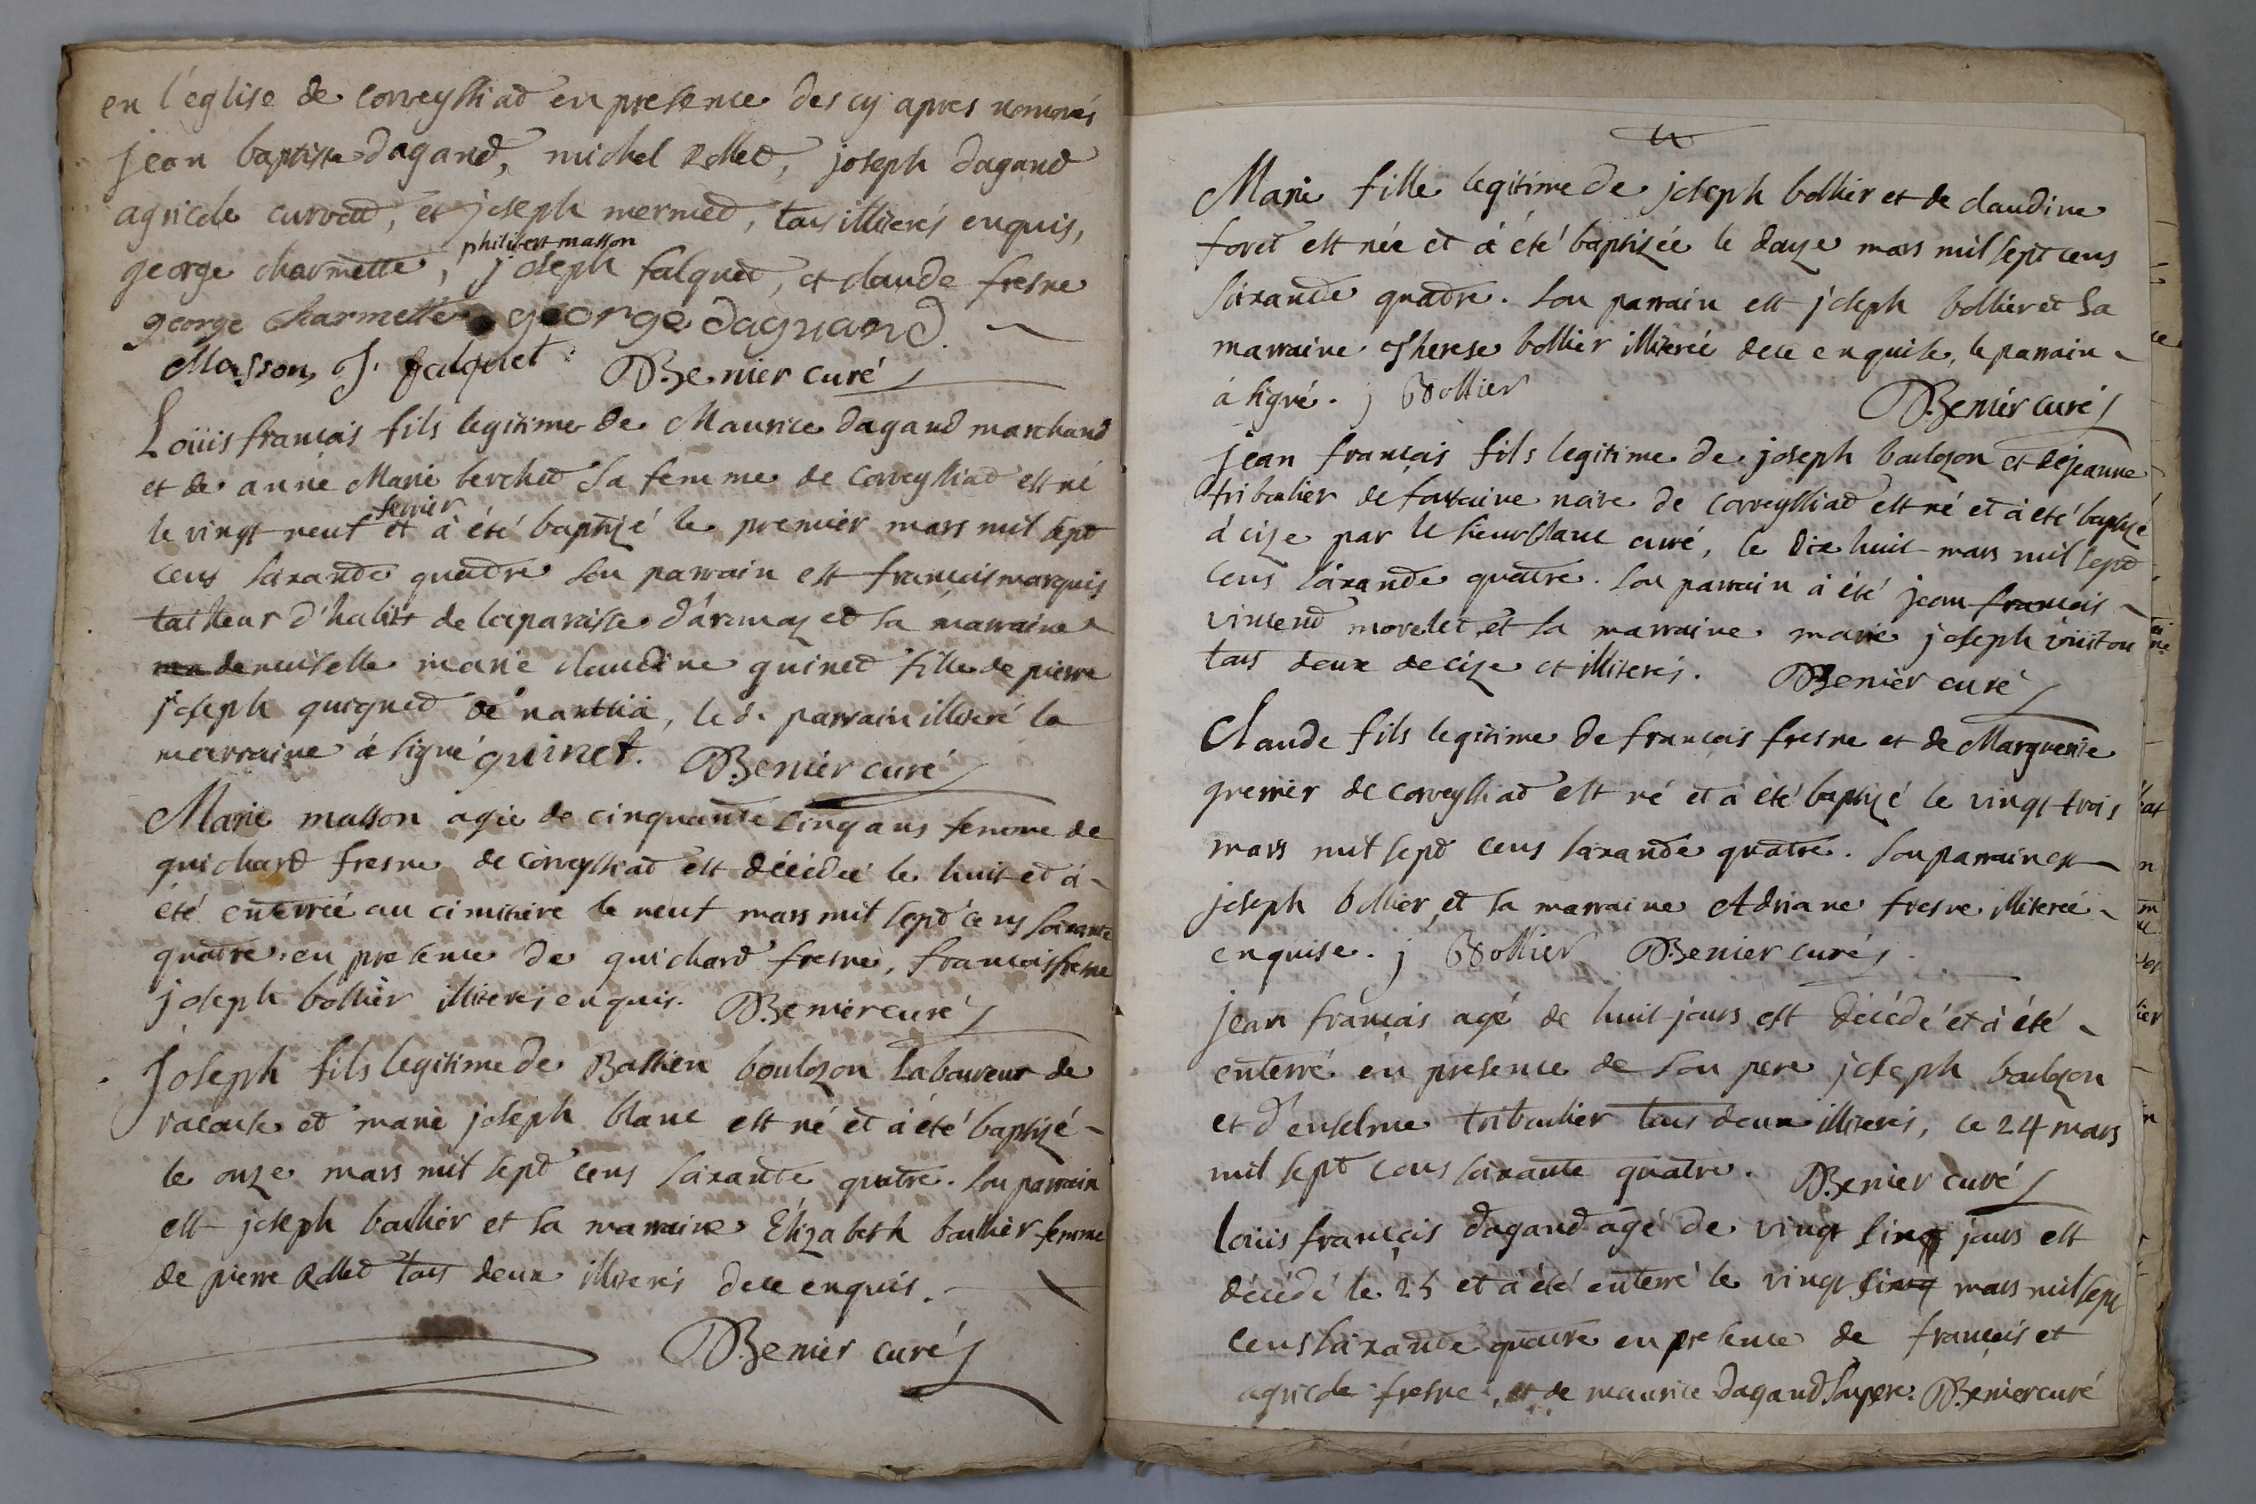 en l'église de corveyssiat en presence des cy apres nommés
jean baptiste dagand, michel rollet, joseph dagand
agricole curvat, et joseph mermet, tous illiterés enquis,
philibert masson
george charmette, joseph falquet, et claude fresne
george charmette george daguand.
Masson, J. falquet. Benier curé
Loüis françois fils legitime de Maurice dagand marchand
et de anne Marie berchet sa femme de corveyssiat est né
fevrier
le vingt neuf et à été baptizé le premier mars mil sept
cens soixante quatre son parrain est françois marquis
tailleur d'habits de la paroisse d'aromaz et sa marraine
demoiselle marie claudine guinet fille de pierre
joseph guignet de nantua, led. parrain illiteré la
marraine à signé guinet. Benier curé
Marie masson agée de cinquante cinq ans femme de
guichard fresne de corveyssiat est décédée le huit et à
été enterrée au cimitiere le neuf mars mil sept cens soixante
quatre en presence de guichard fresne, françois fresne
joseph bollier illiterés enquis. Benier curé
Joseph fils legitime de Bastien boulozon Laboureur de
racouse et marie joseph blanc est né et à été baptizé
le onze mars mil sept cens soixante quatre. son parrain
est joseph boulier et sa marraine Elizabeth boullier femme
de pierre rollet tous deux illiterés de ce enquis.
Benier curé
Marie fille legitime de joseph bollier et de claudine
foret est née et à été baptizée le douze mars mil sept cens
soixante quatre. son parrain est joseph bollier et sa
marraine therese bollier illiterée de ce enquise, le parrain
à signé. j Bollier
Benier curé
jean françois fils legitime de joseph boulozon et de jeanne
triboulier de fontaine noire de corveyssiat est né et à été baptizé
à cize par le sieur blanc curé, le dix huit mars mil sept
cens soixante quatre. son parrain à été jean françois
vincend morelet et sa marraine marie joseph
tous deux de cize et illiterés. Benier curé
Claude fils legitime de françois fresne et de Marguerite
grenier de corveyssiat est né et à été baptizé le vingt trois
mars mil sept cens soixante quatre. son parrain est
joseph bollier et sa marraine Adriane fresne illiterée
enquise. j Bollier Benier curé
jean françois agé de huit jours est décédé et à été
enterré en presence de son pere joseph boulozon
et d'enselme triboulier tous deux illiterés, ce 24 mars
mil sept cens soixante quatre. Benier curé
Loüis françois dagand agé de vingt sinq jours est
décédé le 25 et à été enterré le vingt sinq mars mil sept
cens soixante quatre en presence de françois et
agricole fresne, et de maurice dagand son pere. Benier curé